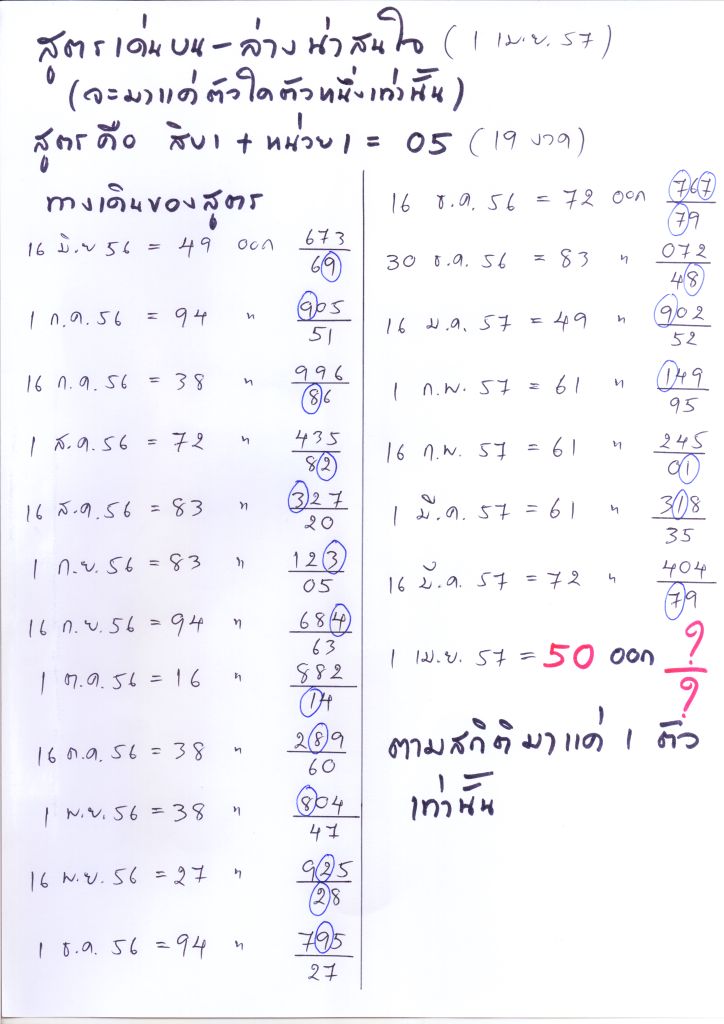 สูตรเด่นบน-ล่างน่าสนใจ (1 เม.ย. 57)
(จะมาแค่ตัวใดตัวหนึ่งเท่านั้น)
สูตรคือ สิบ1 + หน่วย1 = 05 (19 งวด)
ทางเดินของสูตร
16 มิ.ย 56 = 49 ออก 673
69
1 ก.ค. 56 = 94 " 905
51
16 ก.ค 56 = 38 " 996
86
1 ส.ค. 56 = 72 " 435
82
16 ส.ค. 56 = 83 " 327
20
1 ก.ย. 56 = 83 " 123
05
16 ก.ย. 56 = 94 " 684
63
1 ต.ค. 56 = 16 " 882
14
16 ต.ค. 56 = 38 " 289
60
1 พ.ย. 56 = 38 " 804
47
16 พ.ย. 56 = 27 " 925
28
1 ธ.ค. 56 = 94 " 795
27
16 ธ.ค. 56 = 72 ออก 767
79
30 ธ.ค. 56 = 83 " 072
48
16 ม.ค. 57 = 49 " 902
52
1 ก.พ. 57 = 61 " 149
95
16 ก.พ. 57 = 61 " 245
01
1 มี.ค. 57 = 61 " 318
35
16 มี.ค. 57 = 72 " 404
79
1 เม.ย. 57 = 50 ออก ?
?
ตามสถิติมาแค่ 1 ตัว
เท่านั้น